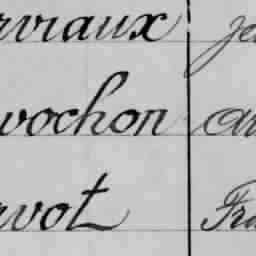 rviaux Je
vochon au
rvot Fra